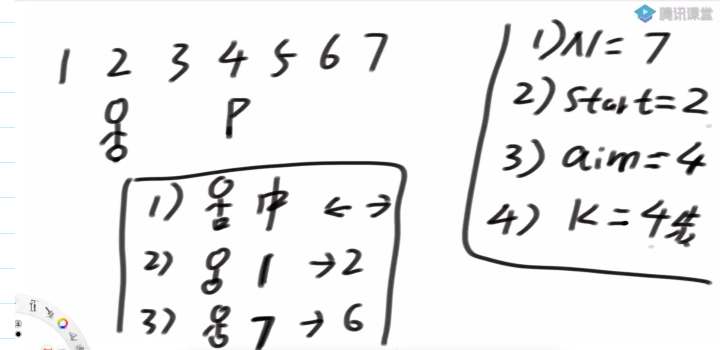 腾讯课堂
1 2 3 4 5 6 7
P
1) 中 ← →
2) 1 → 2
3) 7 → 6
1) N = 7
2) Start = 2
3) aim = 4
4) K = 4步